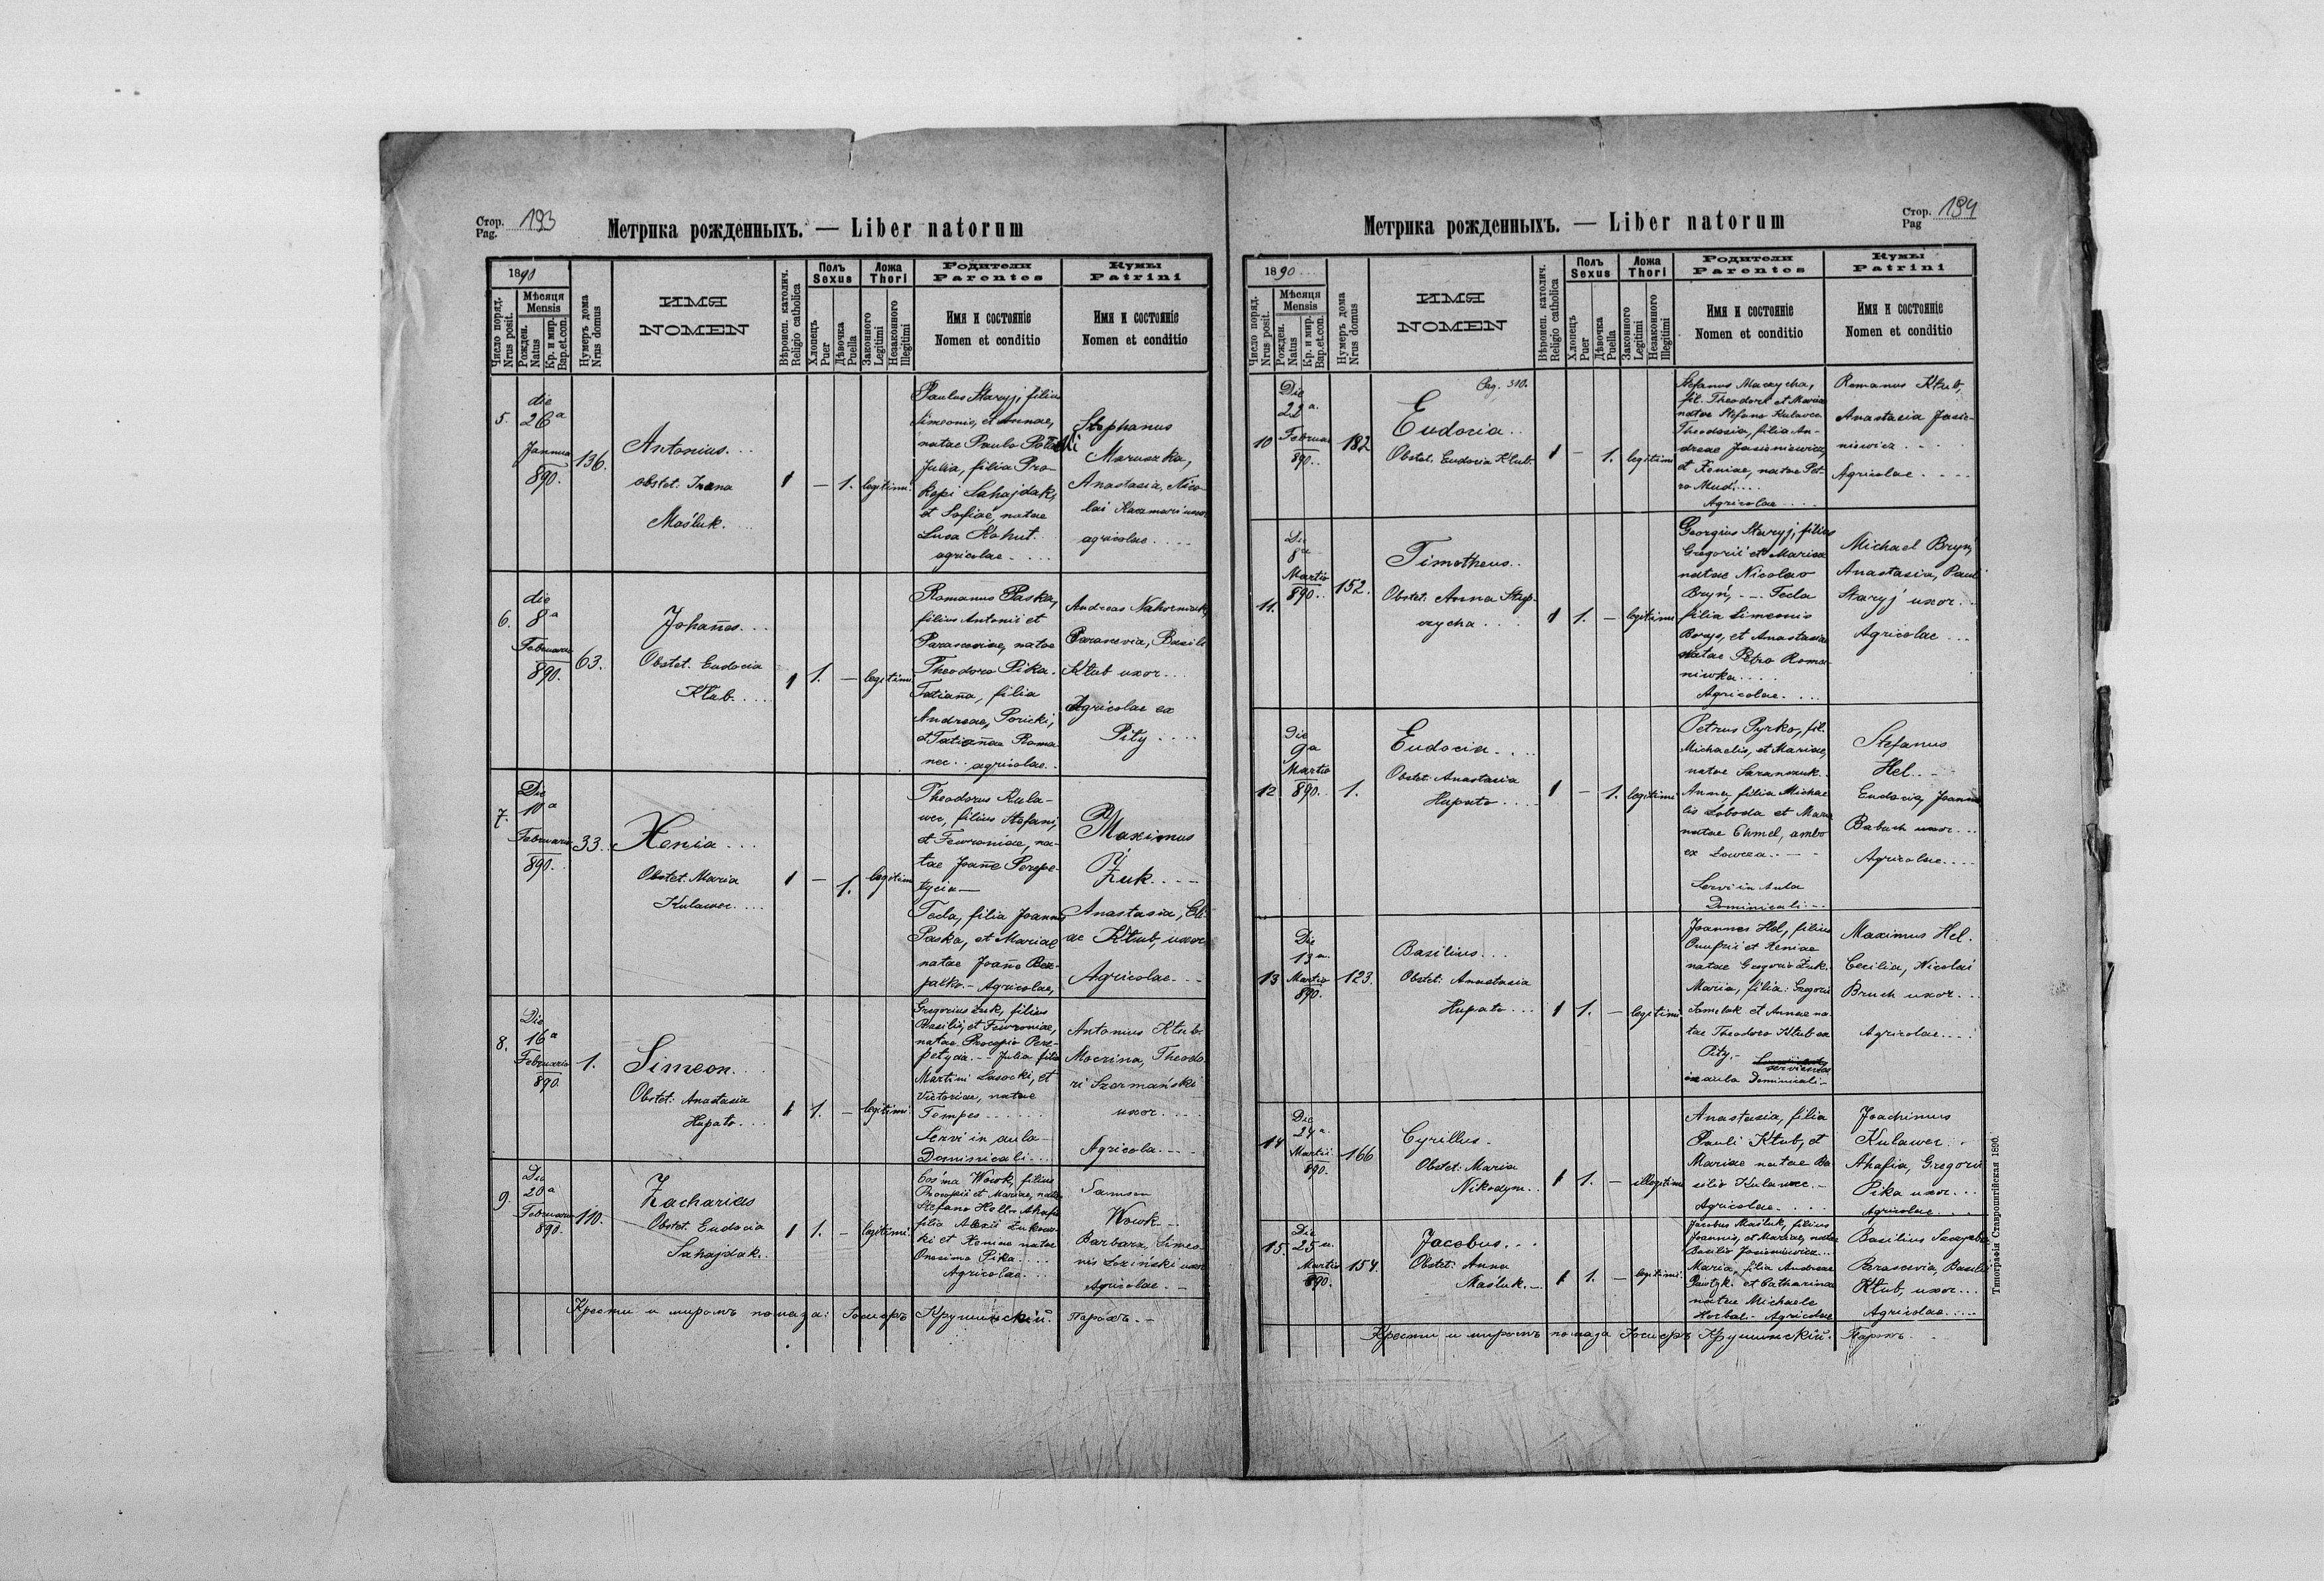 Стор. Pag. 193
Метрика рожденныхъ. — Liber natorum
1890
Число поряд. Nrus posit.
Мѣсяця Mensis
Рожден. Natus
Кр. и мир. Bap.et.con.
Нумеръ дома Nrus domus
ИМЯ
NOMEN
Вѣроисп. католич. Religio catholica
Полъ Sexus
Хлопецъ Puer
Дѣвочка Puella
Ложа Thori
Законного Legitimi
Незаконного Illegitimi
Родители
Parentes
Имя и состояніе
Nomen et conditio
Кумы
Patrini
Имя и состояніе
Nomen et conditio
5.
die
26a
Januar
890.
136.
Antonius...
obstet. Irena
Maśluk.
1 — 1. legitimi.
Paulus Staryj, filius
Simeonis, et Annae,
natae Paulo
Julia, filia Pro-
kopi Sahajdak,
et Sofiae, natae
Luca Kohut.
agricolae....
Stephanus
Maruszka,
Anastasia, Nico-
lai Kaczmari uxor
agricolae....
6.
die
8a
Februarii
890.
63.
Johanes...
Obstet. Eudocia
Kłub....
1 1. — legitimi.
Romanus Paska,
filius Antonii et
Parasceviae, natae
Theodoro Pika.
Tatiana, filia
Andreae, Poricki,
et Tatianae Roma
nec.. agricolae..
Andreas
Parascevia, Basili
Kłub uxor...
Agricolae ex
Pity....
7.
Die
10a
Februarii
890..
33..
Xenia...
Obstet. Maria
Kulawec....
1 — 1. legitimi
Theodorus Kula-
wec, filius Stefani,
et Fewroniae, na-
tae Joane Perepe-
tycia—
Tecla, filia Joannis
Paska, et Mariae
natae Joane Bez-
palko.- Agricolae,
Maximus
Żuk....
Anastasia, Eli-
ae Kłub, uxor
Agricolae...
8.
Die
16a
Februario
890.
1.
Simeon...
Obstet: Anastasia
Hupało...
1 1. — legitimi.
Gregorius Żuk, filius
Basilii, et Fewroniae,
natae Procopio Pere-
petycia.-- Julia filia
Martini Lasocki, et
Victoriae, natae
Tempes......
Servi in aula
Dominicali....
Antonius Kłub.
Mocrina, Theodo
ri Szermański
uxor....
Agricola....
9.
Die
20a
Februario
890.
110.
Zacharias
Obstet. Eudocia
Sahajdak..
1 1. — legitimi.
Cosma Wowk, filius
Procopii et Mariae, natae
Stefano Ahafia
filia Alexii Żukows-
ki et Xeniae natae
Onesimo Pika....
Agricolae...
Samson
Wowk..
Barbara, Simeo-
nis Łoziński uxor
Agricolae.—
Крести и миромъ помаза: Іосифъ Крушинскій. Парохъ.—
Метрика рожденныхъ. — Liber natorum
Стор. Pag 194
1890
Число поряд. Nrus posit.
Мѣсяця Mensis
Рожден. Natus
Кр. и мир. Bap.et.con.
Нумеръ дома Nrus domus
ИМЯ
NOMEN
Вѣроисп. католич. Religio catholica
Полъ Sexus
Хлопецъ Puer
Дѣвочка Puella
Ложа Thori
Законного Legitimi
Незаконного Illegitimi
Родители
Parentes
Имя и состояніе
Nomen et conditio
Кумы
Patrini
Имя и состояніе
Nomen et conditio
10
Die
22a.
Februar
890..
182
Pag. 310.
Eudocia..
Obstet. Eudocia Kłub.
1 — 1. legitimi
Stefanus Maczycha,
fil. Theodori et Mariae
natae Stefano Kulawec
Theodosia, filia An-
dreae Jasieniewicz,
et Xeniae, natae Pet-
ro Mudi....
Agricolae....
Romanus Kłub,
Anastasia Jasie-
niewicz....
Agricolae....
11.
Die
8a
Martio
890..
152.
Timotheus..
Obstet. Anna
czycha....
1 1. — legitimi
Georgius Staryj, filius
Gregorii et Mariae
natae Nicolao
Bryń, -.- Tecla
filia Simeonis
Borys, et Anastasiae
natae Petro Roma-
niwka....
Agricolae....
Michael Bryń,
Anastasia, Pauli
Staryj uxor..
Agricolae...
12
Die
9a
Martio
890..
1.
Eudocia....
Obstet: Anastasia
Hupało....
1 — 1. legitimi
Petrus Pyrko, fil.
Michaelis, et Mariae,
natae Saranczuk.
Anna, filia Michae
lis Łoboda et Maria
natae Chmel, ambo
ex Łowcza.—
Servi in Aula
Dominicali.-.
Stefanus
Hel...
Eudocia, Joannis
Babach uxor...
Agricolae....
13
Die
13a.
Martio
890.
123.
Basilius...
Obstet: Anastasia
Hupało...
1 1. — legitimi
Joannes Hel, filius
Onufrii et Xeniae
natae Gregorio Żuk.
Maria, filia: Gregorii
et Annae na-
tae Theodoro Kłub ex
Pity.-
servientes
in aula Dominicali-
Maximus Hel.
Cecilia, Nicolai
Bruch uxor...
Agricolae....
14
Die
24a.
Martii
890.
166
Cyrillus-
Obstet: Maria
Nikodym..
1 1. — illegitimi
Anastasia, filia
Pauli Kłub, et
Mariae natae Ba
silio Kulawec.-
Agricolae....
Joachimus
Kulawec..
Ahafia, Gregorii
Pika uxor...
Agricolae...
15.
Die
25a.
Martio
890.
154.
Jacobus...
Obstet: Anna
Maśluk.—
1 1. — legitimi.
Jacobus Maśluk, filius
Joannis, et Mariae, natae
Basilio Jasieniewicz..
Maria, filia Andreae
Pawlyk. et Catharinae
natae Michaele
Horbal- Agricolae
Basilius
Parascevia, Basilii
Kłub, uxor...
Agricolae....
Крести и миромъ помаза Іосифъ Крушинскій. Парохъ.
Типографія Ставропигійская 1890.